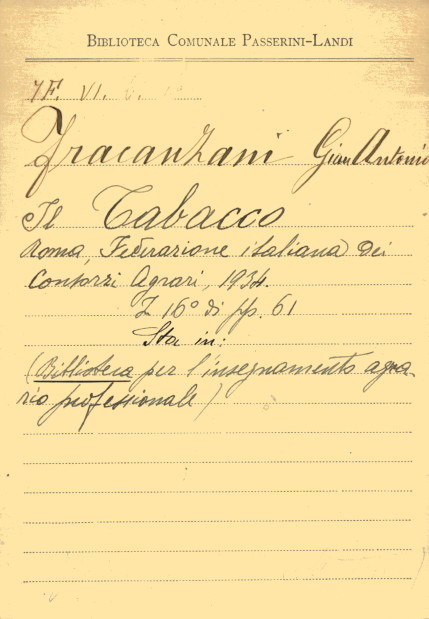 BIBLIOTECA COMUNALE PASSERINI-LANDI
7F. VI.
Fracanzani GianAntonio
Il Tabacco
Roma, Federazione italiana dei
Consorzi Agrari, 1934.
16° di pp. 61
Sta in:
(Biblioteca per l'insegnamento agra-
rio professionale)